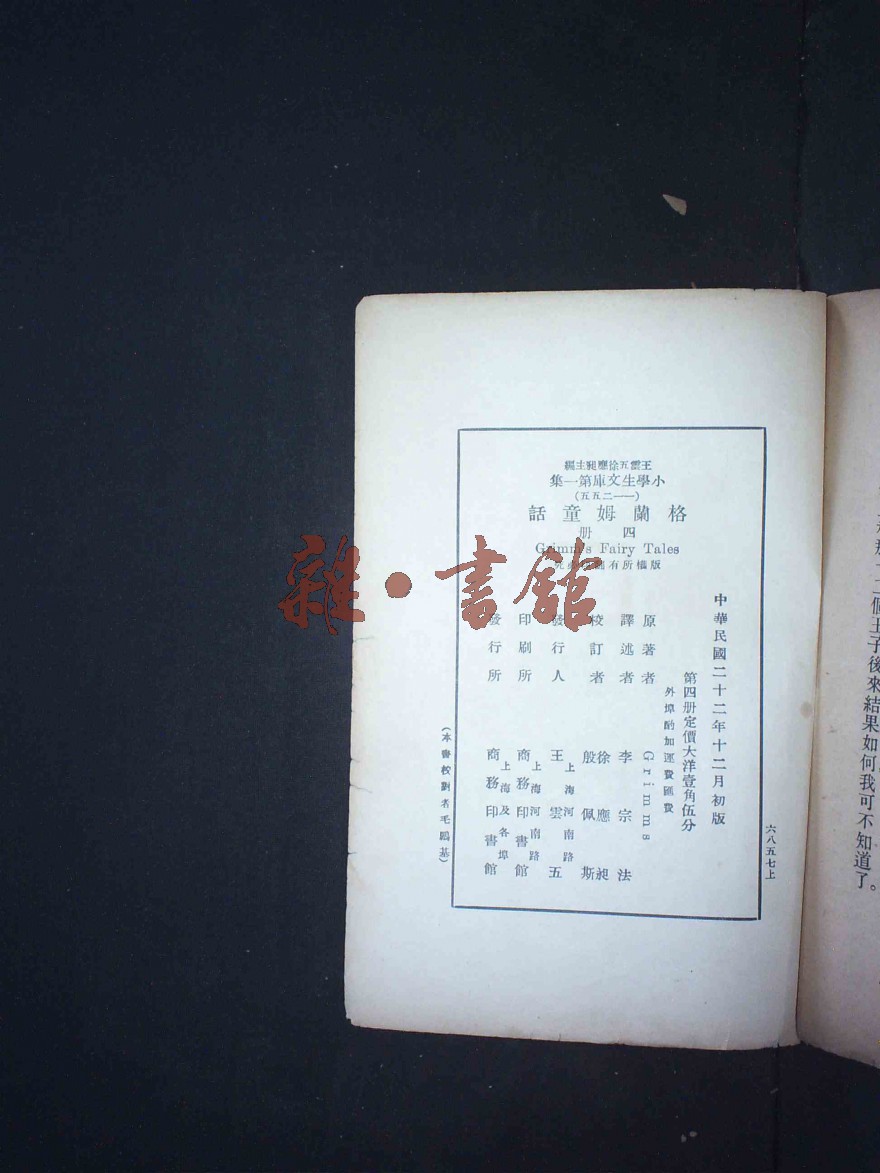 王雲五徐應昶主編
小學生文庫第一集
(一一二五五)
格蘭姆童話
四册
Grimm's Fairy Tales
版權所有翻印必究
中華民國二十二年十二月初版
第四册定價大洋壹角伍分
外埠酌加運費匯費
原著者 Grimms
譯述者 李宗法
校訂者 徐應昶 殷佩斯
發行人 王雲五 上海河南路
印刷所 商務印書館 上海河南路
發行所 商務印書館 上海及各埠
(本書校對者毛鵬基)
六八五七上
個王子後來結果如何我可不知道了。
雜·書館